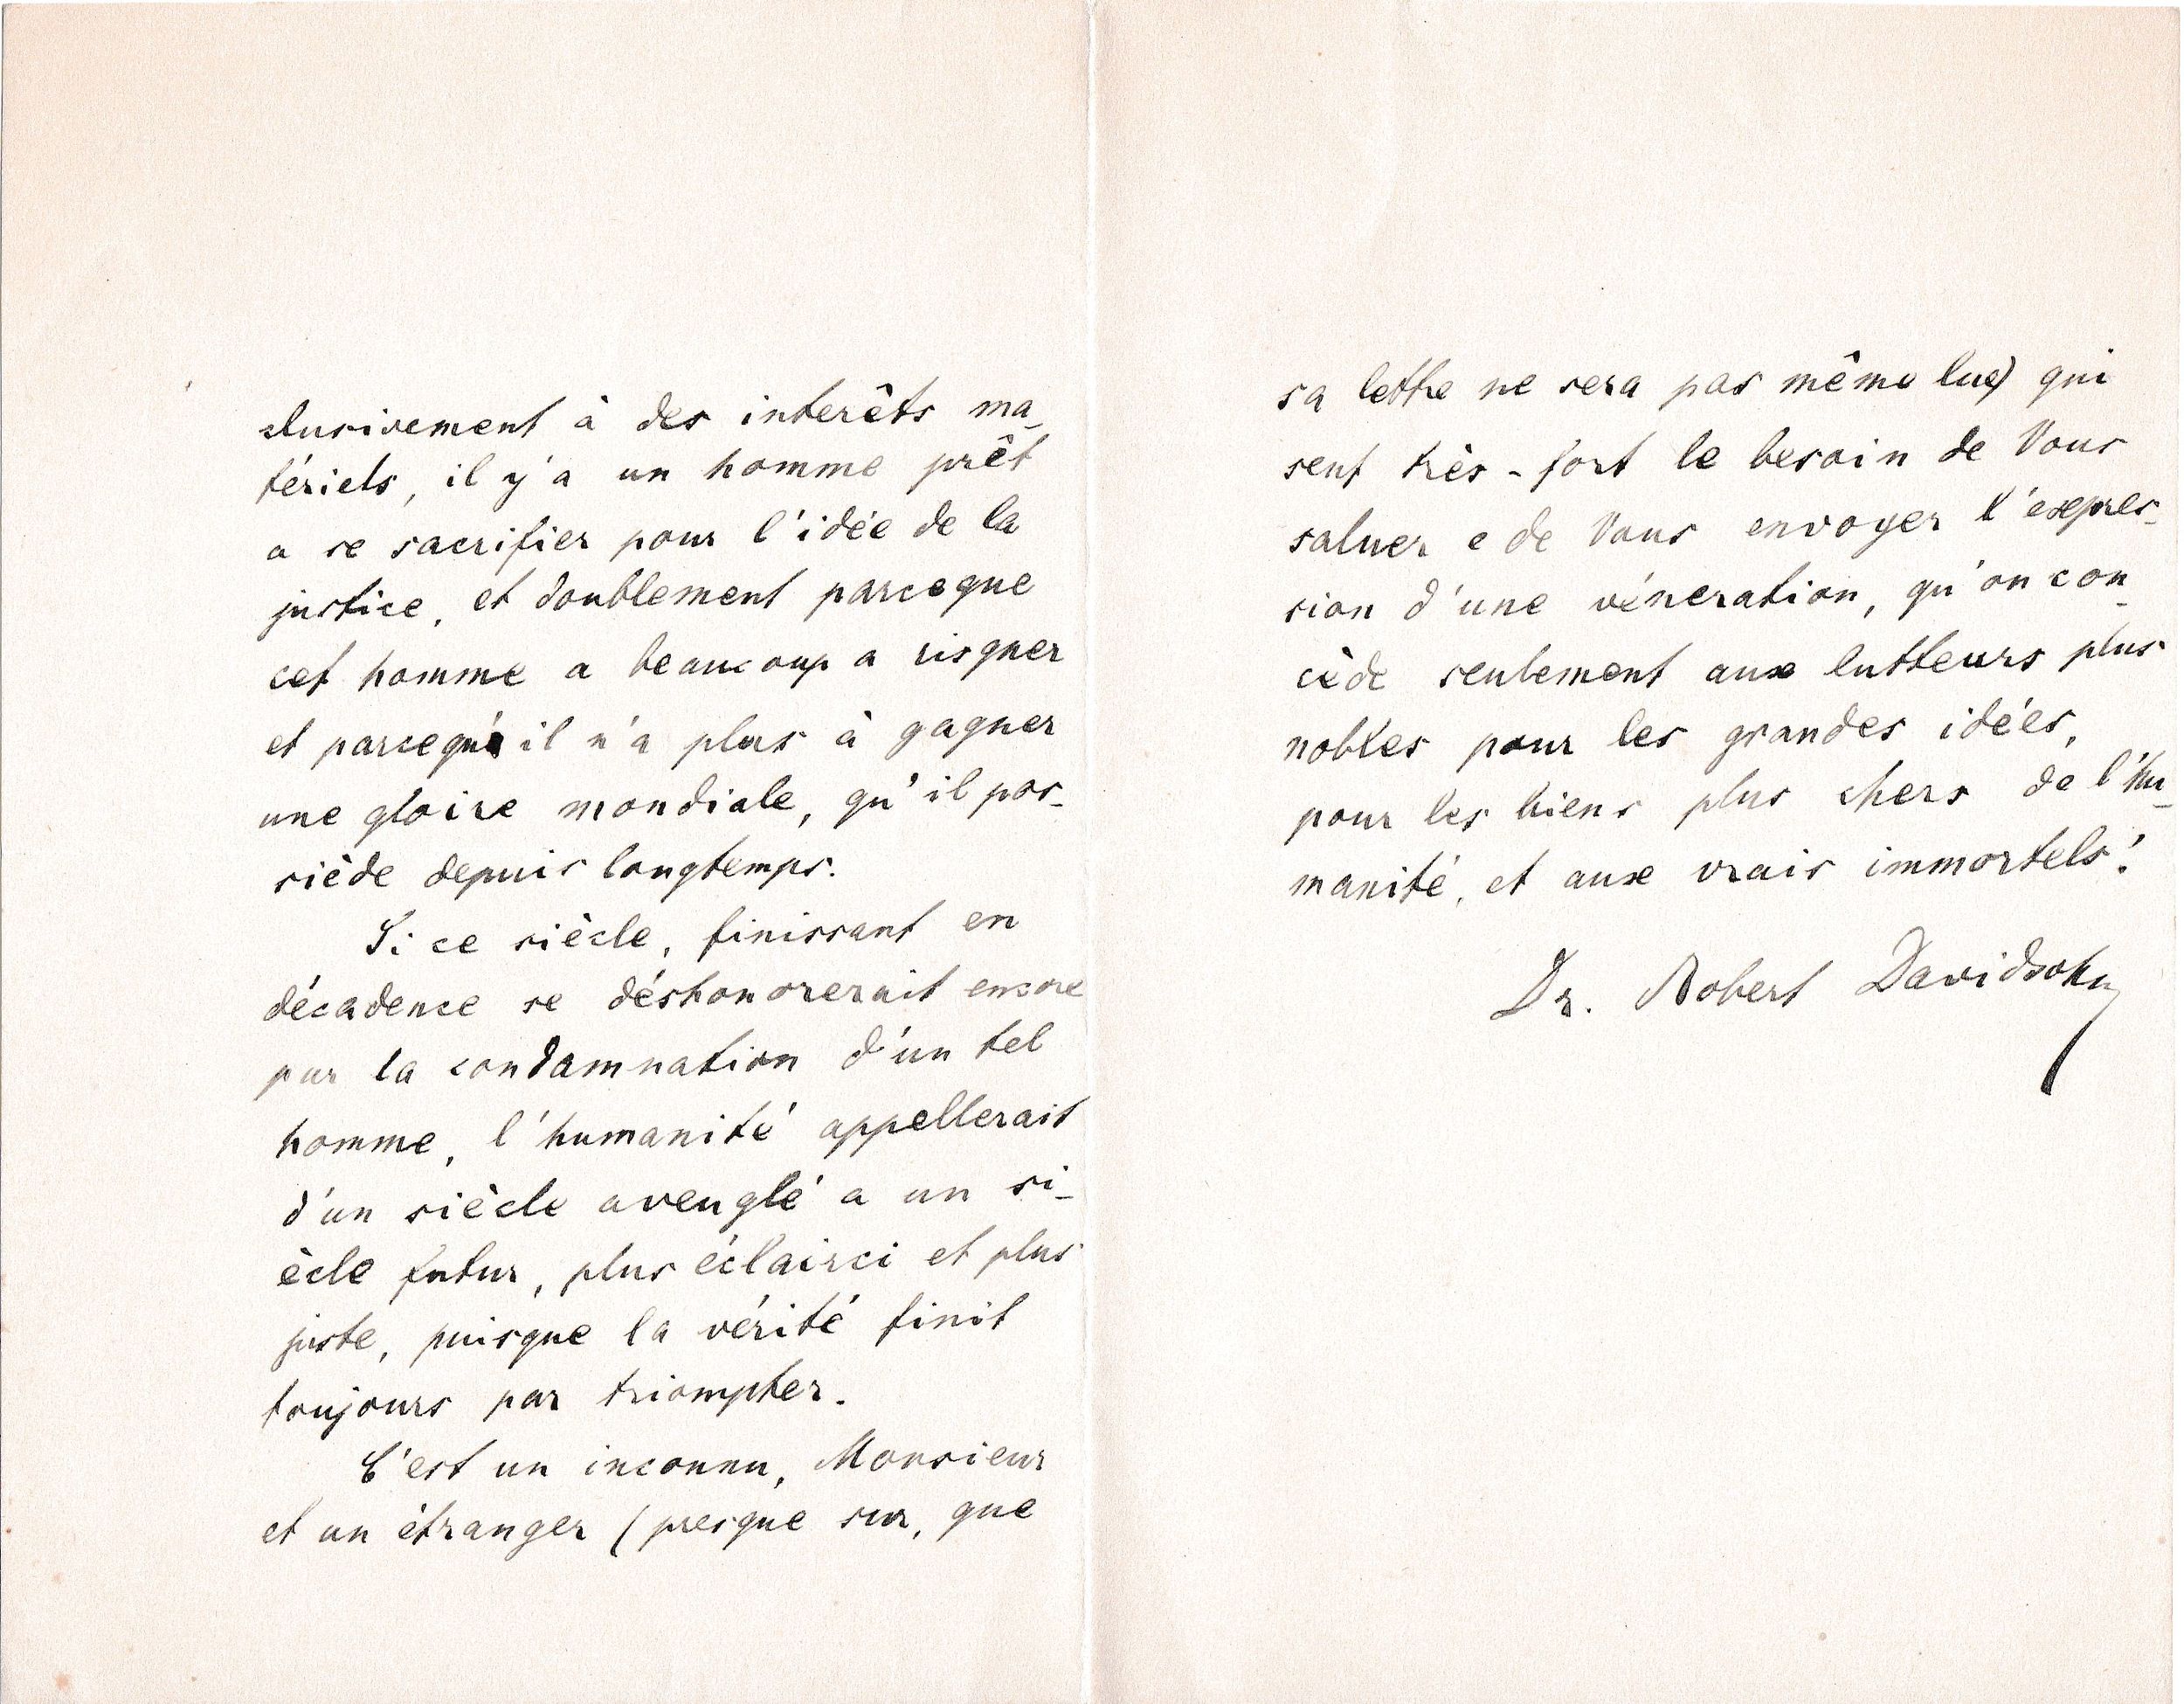 clusivement à des interêts ma-
tériels, il y'a un homme prêt
a se sacrifier pour l'idée de la
justice, et doublement parceque
cet homme a beaucoup a risquer
et parcequ' il n'a plus à gagner
une gloire mondiale, qu'il pos-
siède depuis longtemps.
Si ce siècle, finissant en
décadence se déshonorerait encore
par la condamnation d'un tel
homme, l'humanité appellerait
d'un siècle aveuglé a un si-
ècle futur, plus éclairci et plus
juste, puisque la vérité finit
toujours par triompher.
C'est un inconnu, Monsieur
et un étranger (presque sur, que
sa lettre ne sera pas même lue) qui
sent très-fort le besoin de Vous
saluer e de Vous envoyer l'expres-
sion d'une véneration, qu'on con-
cède seulement aux lutteurs plus
nobles pour les grandes idées,
pour les biens plus chers de l'hu-
manité, et aux vrais immortels!
Dr. Robert Davidsohn